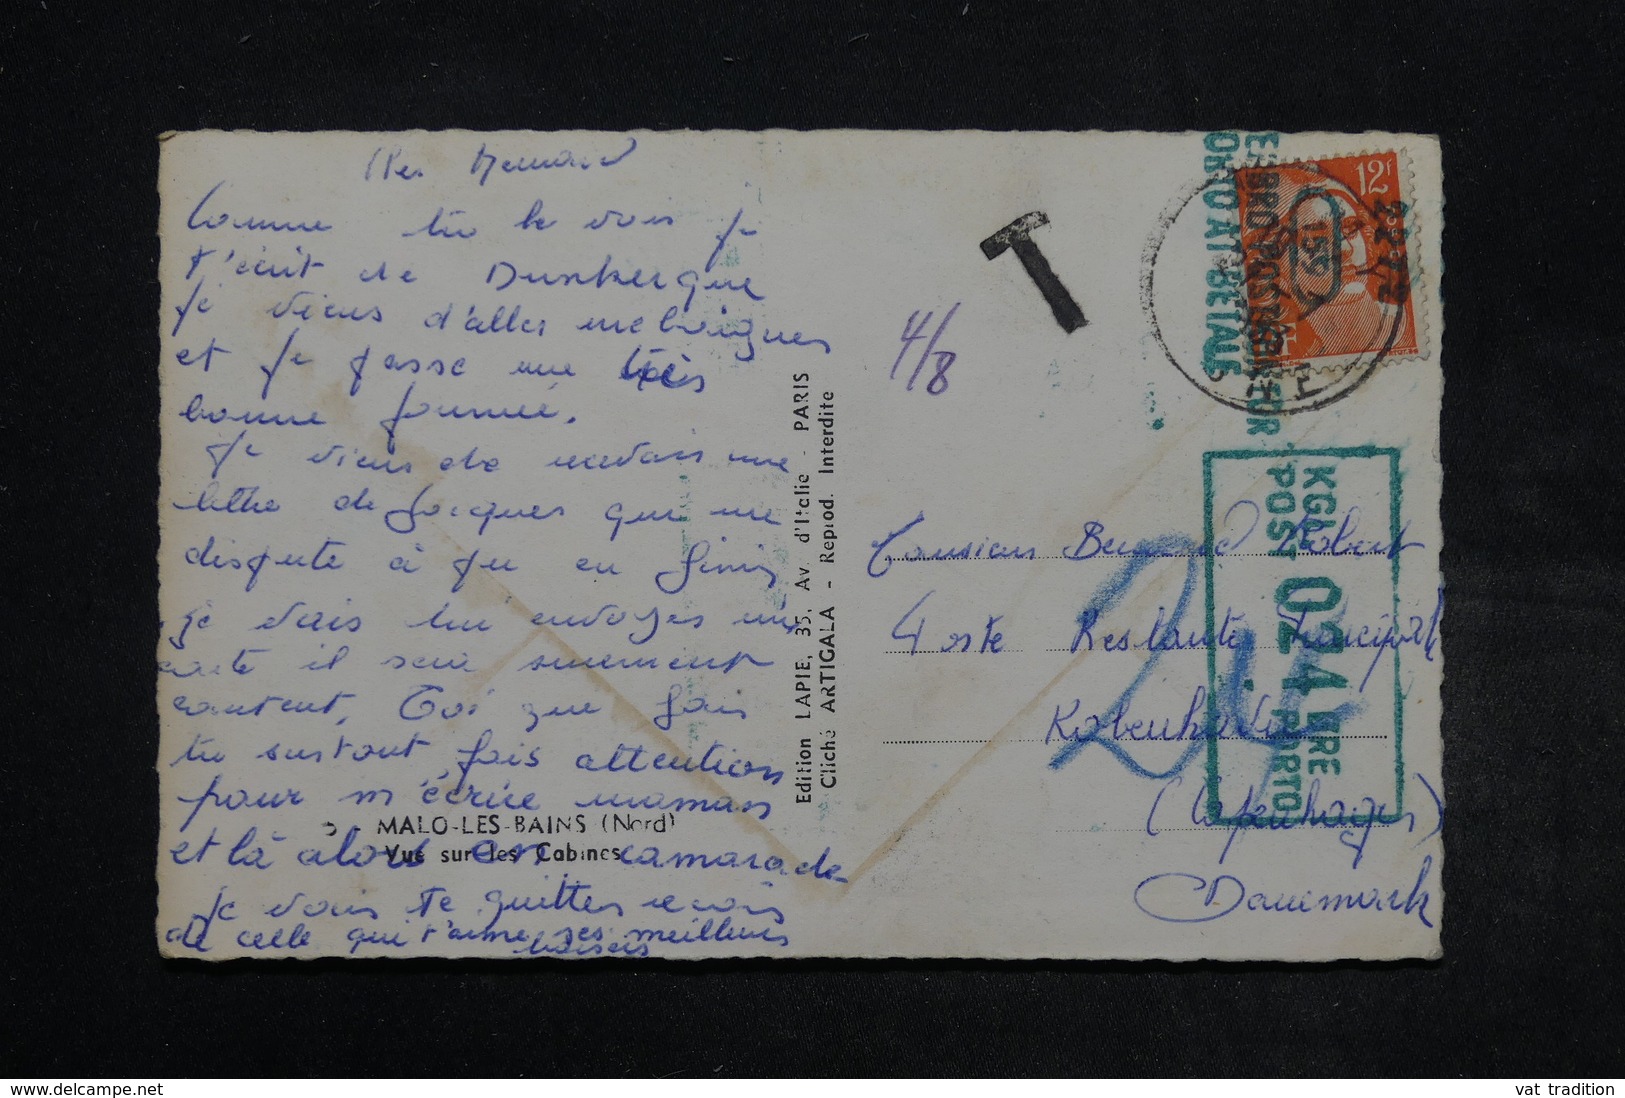 Cher Bernard
Comme tu le vois je
t'écrit de Dunkerque
je viens d'aller me baigner
et je passe une très
bonne journée.
Je viens de recevoir une
lettre de Jacques qui me
dispute à
je vais lui envoyer une
carte il sera surement
content. Toi que fais
tu surtout fais attention
pour m'écrire maman
et là alors camarade
je vais te quitter reçois
de celle qui t'aime ses meilleurs
baisers
MALO-LES-BAINS (Nord)
Vue sur les Cabines
Edition LAPIE, 35, Av. d'Italie - PARIS
Cliché ARTIGALA - Reprod. Interdite
T
4/8
12f
1559
22 7 8
PORTO AT BETALE
KGL
POST 024 ØRE
PORTO
24
Monsieur Bernard Robert
Poste Restante Principale
Kobenhavn
(Copenhague)
Danemark
www.delcampe.net
vat tradition